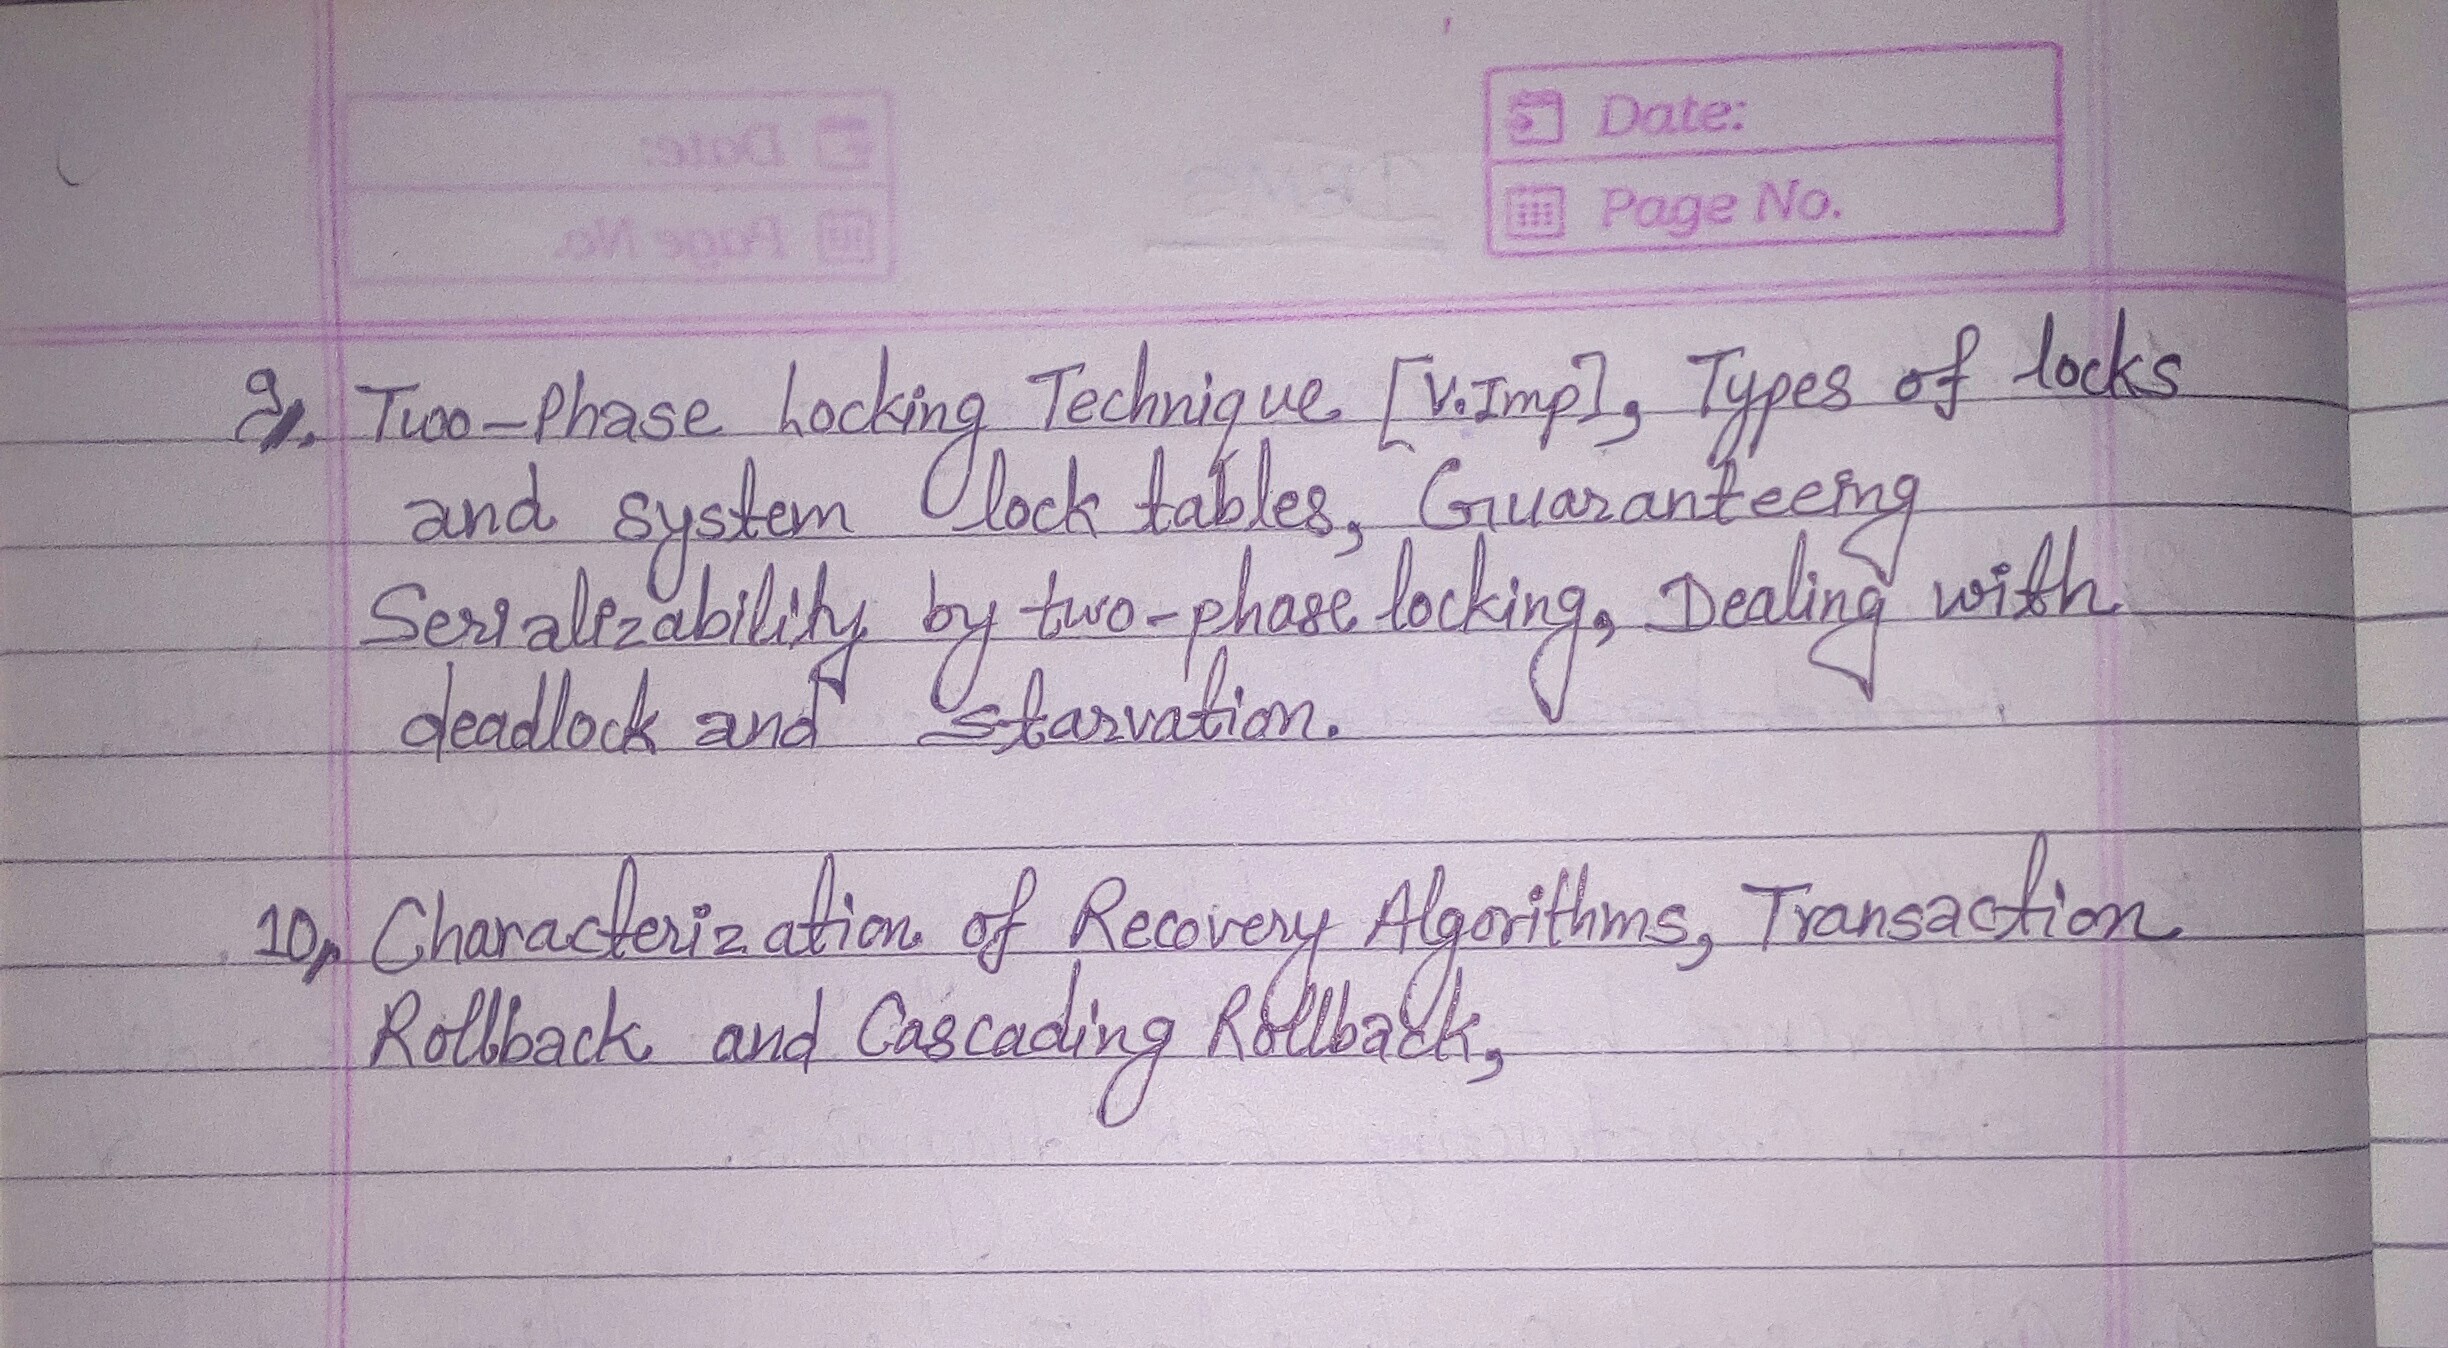 Date:
Page No.
9. Two-Phase Locking Technique [V.Imp], Types of locks
and system lock tables, Guaranteeing
Serializability by two-phase locking, Dealing with
deadlock and starvation.
10, Characterization of Recovery Algorithms, Transaction
Rollback and Cascading Rollback,